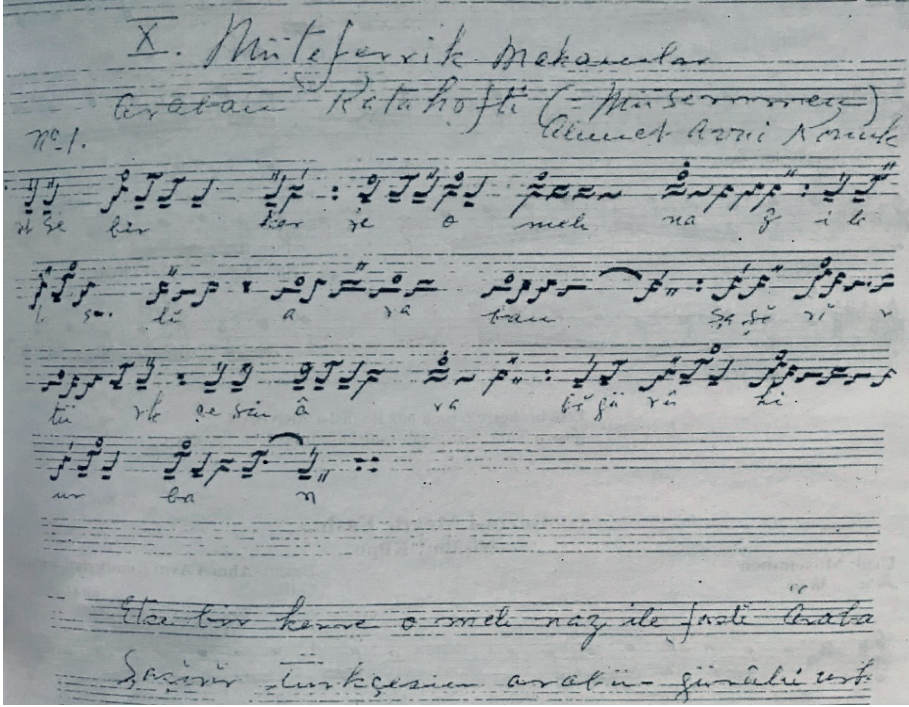 X. Müteferrik Makamlar
Araban Kütahofti (= Müsemmen)
no-1. Ahmet Avni Konuk
et se bir ker re o meh na z i le
f s li a ra ban şa şı rı r
tü rk çe sin â ra bî gü rû hi
ur ba n
Etse bir kerre o meh naz ile fasli Araba
Şaşırır türkçesin arabü- gürûhi urb